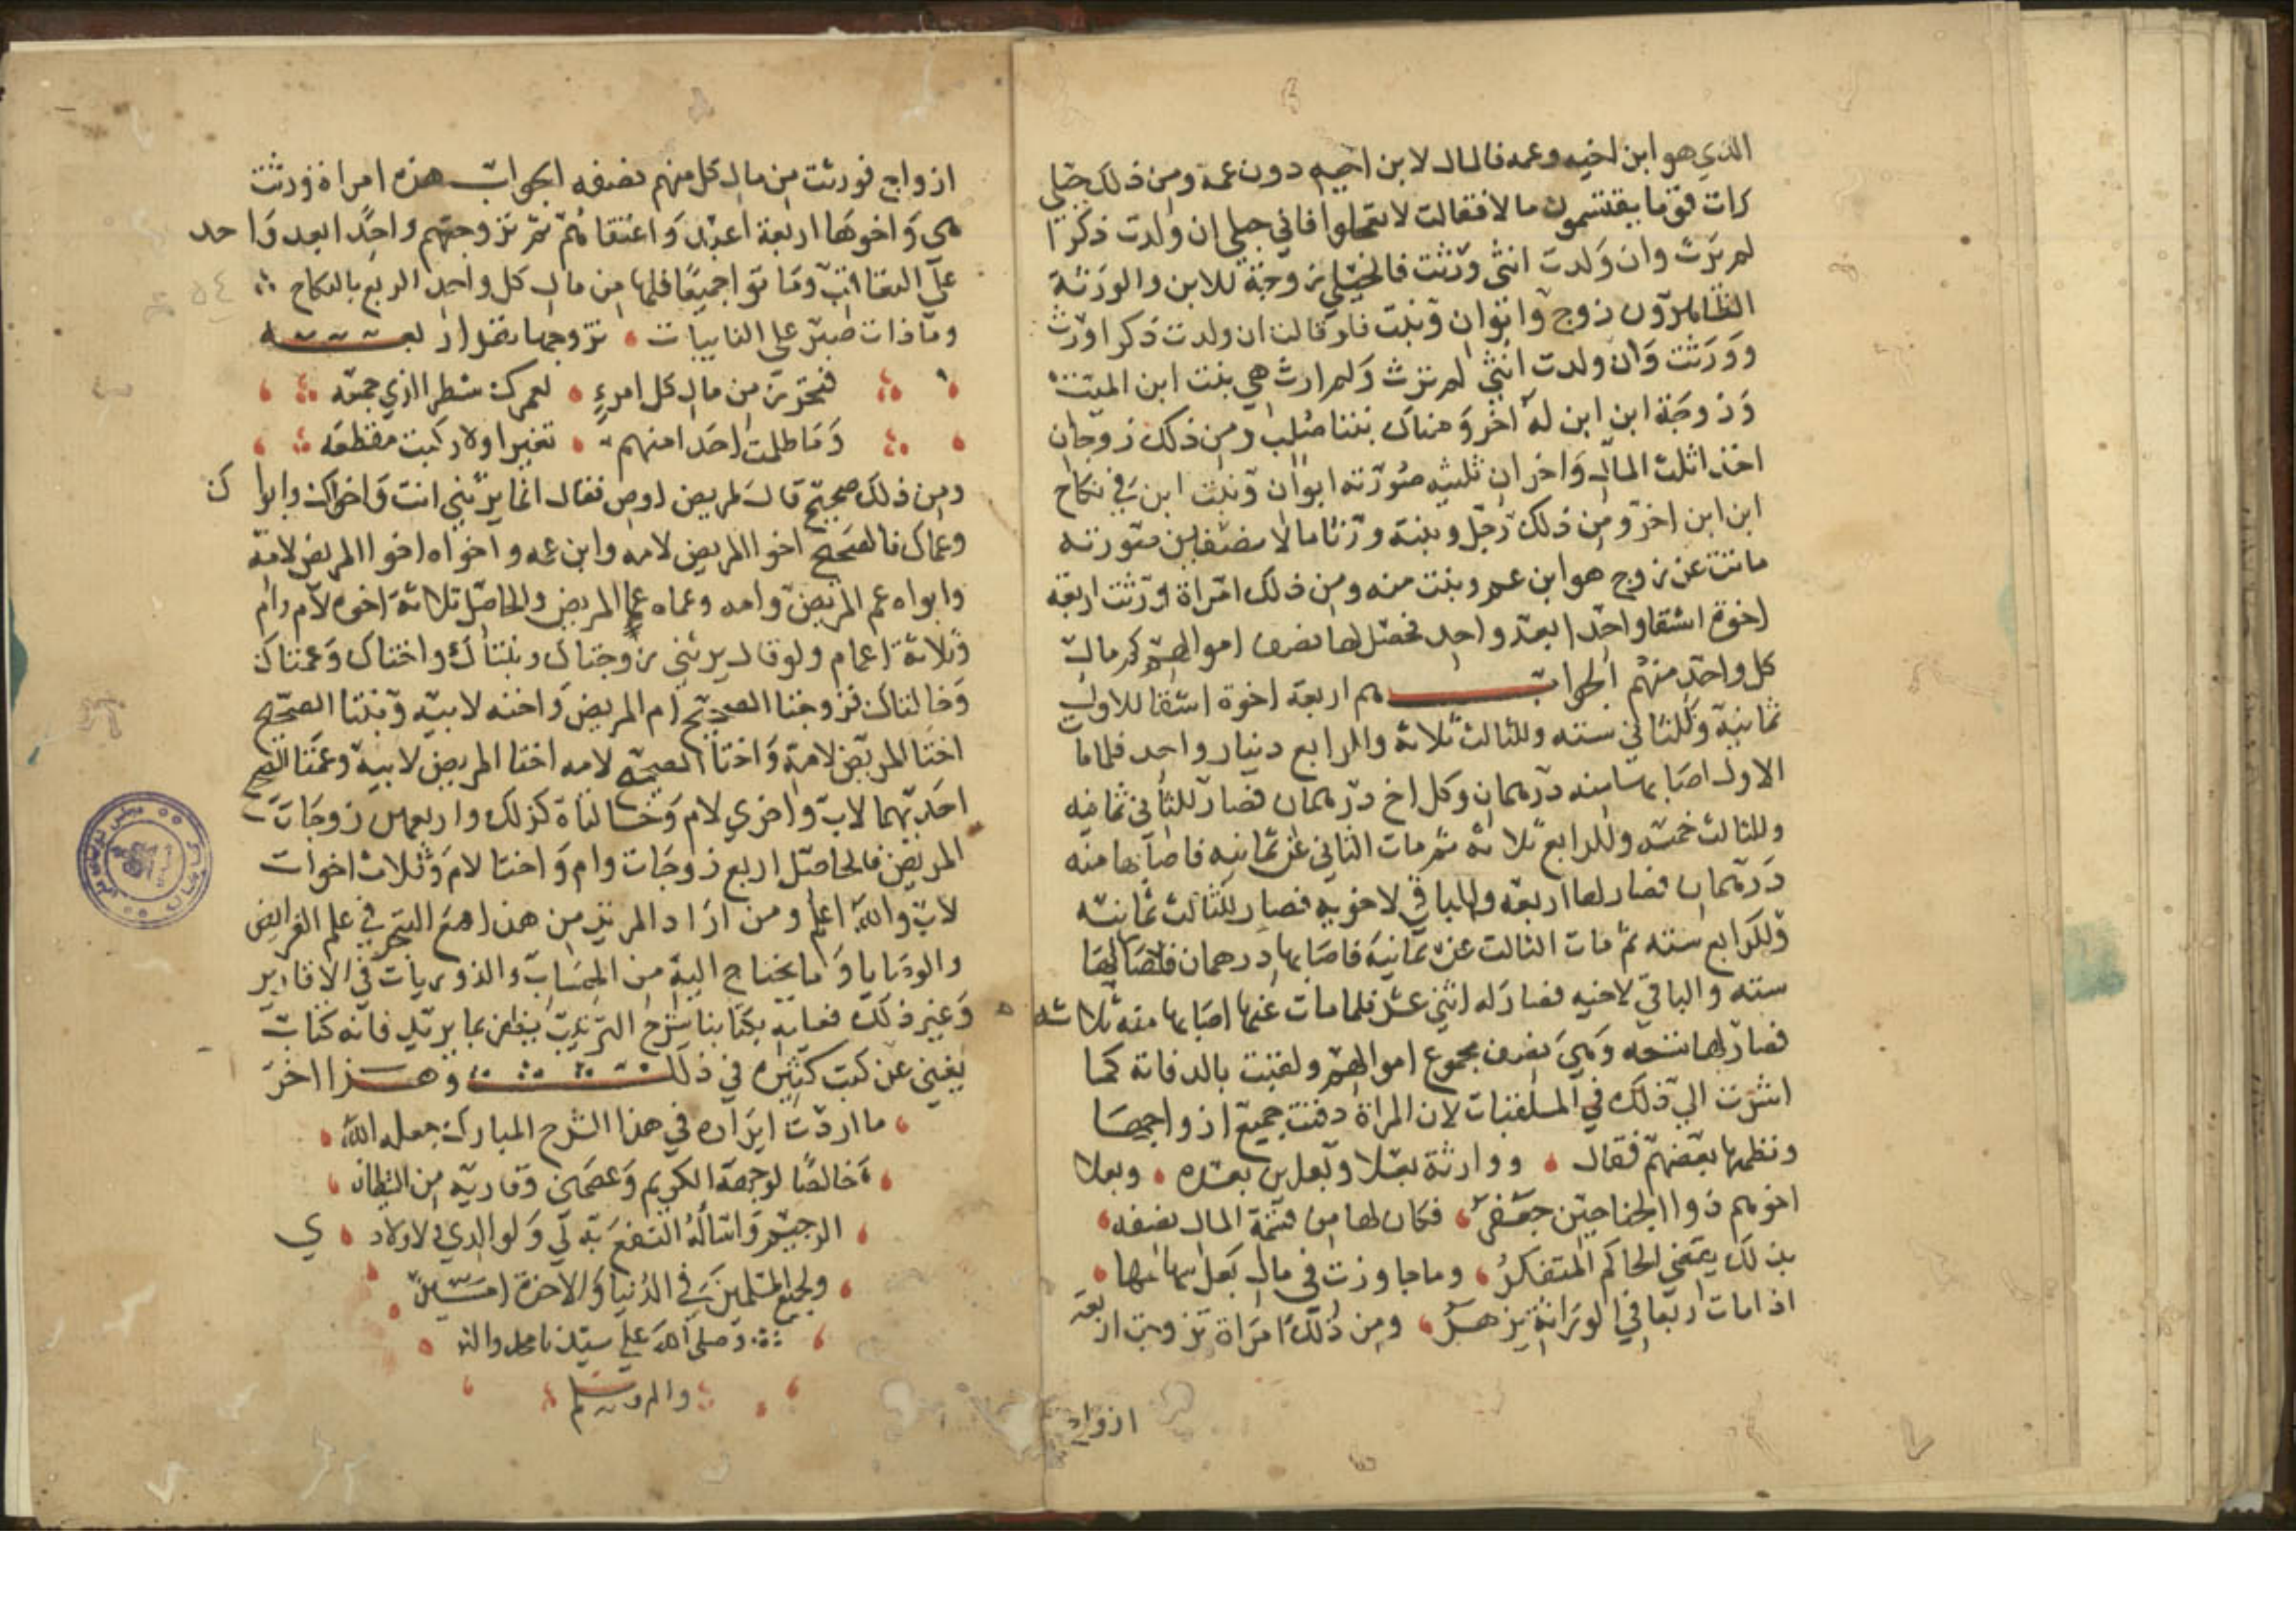 الذي هو ابن اخيه وعمه فالمال لابن اخيه دون عمه ومن ذلك حبلى
رات قوما يقتسمون مالا فقالت لا تعجلوا فاني حبلى ان ولدت ذكرا
لم يرث وان ولدت انثى ورثت فالحبلى زوجة للابن والورثة
الظاهرون زوج وابوان وبنت فلو قالت ان ولدت ذكرا ورث
وورثت وان ولدت انثى لم ترث ولم ارث هي بنت ابن الميت
وزوجة ابن ابن له اخر وهناك بنتا صلب ومن ذلك زوجان
اخذا ثلث المال واخران ثلثيه صورته ابوان وبنت ابن في نكاح
ابن ابن اخر ومن ذلك رجل وبنته ورثا مالا نصفين صورته
ماتت عن زوج هو ابن عم وبنت منه ومن ذلك امراة ورثت اربعة
اخوة اشقا واحدا بعد واحد فحصل لها نصف اموالهم كم مال
كل واحد منهم الجواب هم اربعة اخوة اشقا للاول
ثمانية وللثاني ستة وللثالث ثلاثة وللرابع دينار واحد فلما مات
الاول اصابها منه درهمان وكل اخ درهمان فصار للثاني ثمانيه
وللثالث خمسه وللرابع ثلاثة ثم مات الثاني عن ثمانيه فاصابها منه
درهمان فصار لها اربعه والباقي لاخويه فصار للثالث ثمانيه
وللرابع سته ثم مات الثالث عن ثمانية فاصابها درهمان فصار لها
سته والباقي لاخيه فصار له اثني عشر فلما مات عنها اصابها منه ثلاثه
فصار لها تسعه وهي نصف مجموع اموالهم ولقبت بالدفانة كما
اشرت الي ذلك في الملقبات لان المراة دفنت جميع ازواجها
ونظمها بعضهم فقال ووارثة بعلا وبعلين بعده وبعلا
اخوهم ذوا الجناحين جعفر فكان لها من قسمة المال نصفه
بذلك يقضي الحاكم المتفكر وما جاوزت في مال بعل سهامها
اذا مات ربعا في الوراثة يزهر ومن ذلك امراة تزوجت اربعة
ازواج
ازواج فورثت من مال كل منهم نصفه الجواب هذه امراة ورثت
هي واخوها اربعة اعبد واعتقاهم ثم تزوجتهم واحدا بعد واحد
على التعاقب وماتوا جميعا فلها من مال كل واحد الربع بالنكاح
وما ذات صبر على النايبات تزوجها نفر اربعه
فتحرز من مال كل امرء لعمرك شطر الذي جمعه
وما ظلمت احدا منهم نقيرا ولا ركبت مقطعه
ومن ذلك صحيح قال لمريض اوص فقال انما يرثني انت واخواك وابواك
وعماك فالصحيح اخوا المريض لامه وابن عمه واخواه اخوا المريض لامه
وابواه عم المريض وامه وعماه عما المريض والحاصل ثلاثة اخوه لام وام
وثلاثة اعمام ولو قال يرثني زوجتاك وبنتاك واختاك وعمتاك
وخالتاك فزوجتا الصحيح ام المريض واخته لابيه وبنتا الصحيح
اختا المريض لامه واختا الصحيح لامه اختا المريض لابيه وعمتا الصحيح
احديهما لاب واخرى لام وخالتاه كذلك واربعهن زوجات
المريض فالحاصل اربع زوجات وام واختا لام وثلاث اخوات
لاب والله اعلم ومن اراد المزيد من هذا مع التبحر في علم الفرايض
والوصايا وما يحتاج اليه من الحساب والدوريات في الاقارير
وغير ذلك فعليه بكتابنا شرح الترتيب يظفر بما يريد فانه كتاب
يغني عن كتب كثيره في ذلك وهذا اخر
ما اردت ايراده في هذا الشرح المبارك جعله الله
خالصا لوجهه الكريم وعصمني وقاريه من الشيطان
الرجيم واساله النفع به لي ولوالدي ولاولادي
ولجميع المسلمين في الدنيا والاخرة امين
وصلى الله على سيدنا محمد واله